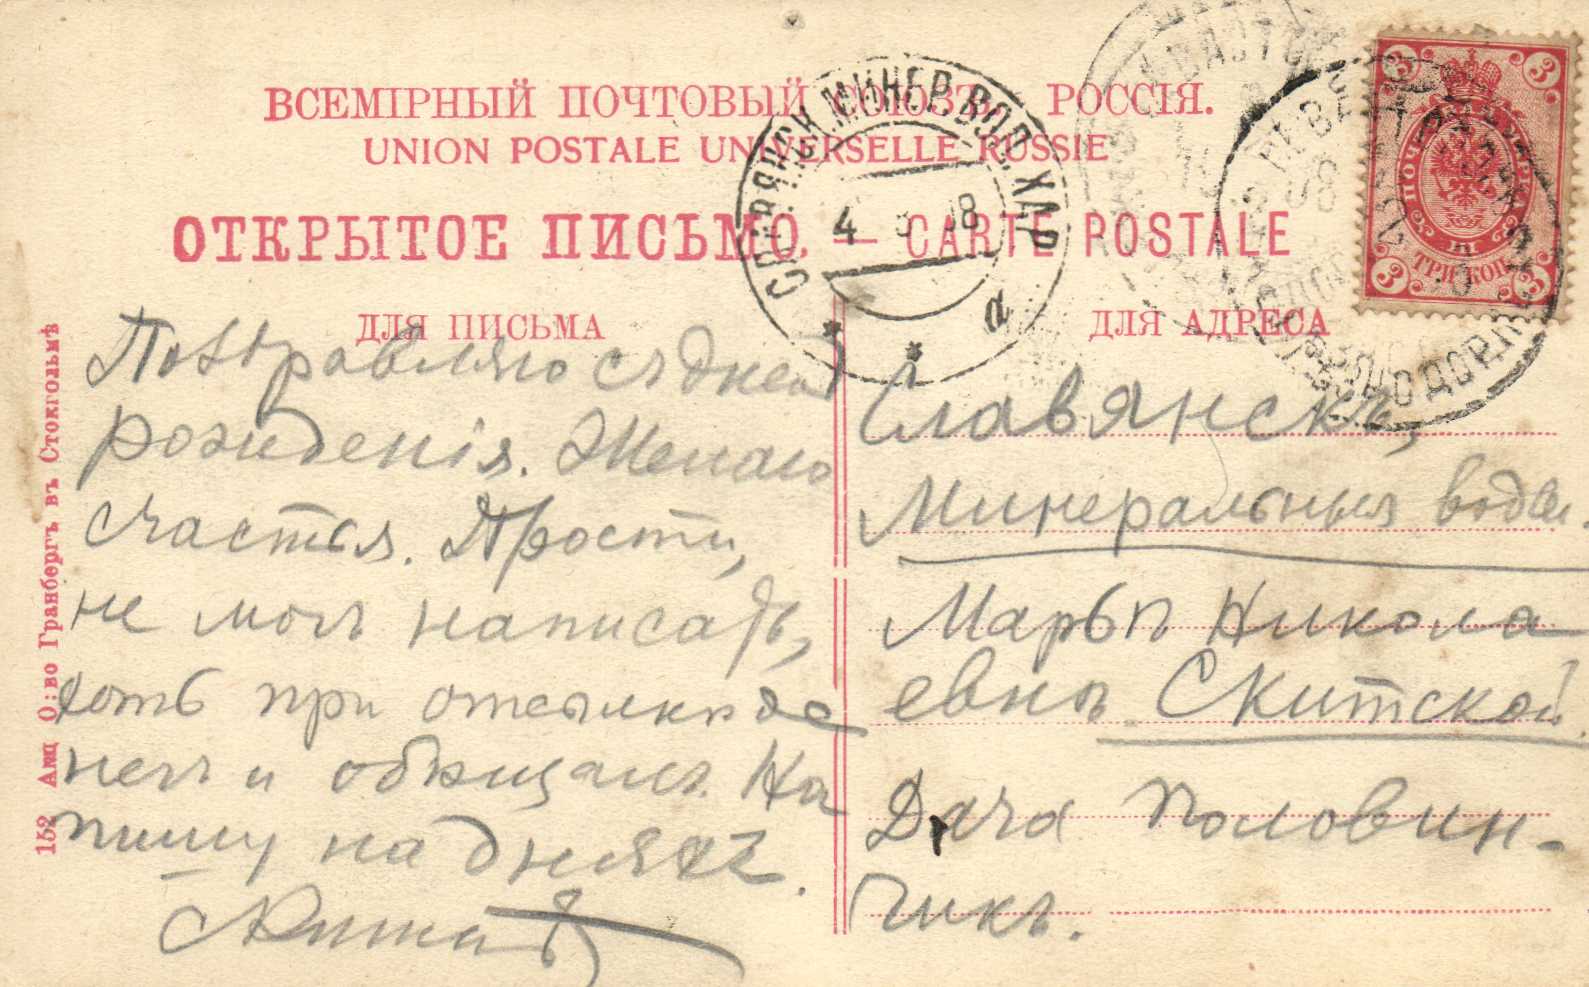 ВСЕМІРНЫЙ ПОЧТОВЫЙ СОЮЗЪ. РОССІЯ.
UNION POSTALE UNIVERSELLE RUSSIE
ОТКРЫТОЕ ПИСЬМО. — CARTE POSTALE
СЛАВЯНСК. МИНЕР. ВОД. ХАР.
4 8 08
а
3 3
ПОЧТОВАЯ МАРКА
ТРИ КОП.
3 3
ДЛЯ ПИСЬМА
Поздравляю съ днемъ
рожденія. Желаю
счастья. Прости,
не могъ написать,
хоть при отсылкѣ
и обѣщалъ. На
пишу на дняхъ.
ДЛЯ АДРЕСА
Славянскъ,
Минеральныя воды.
Марьѣ Никола
евнѣ Скитской
Дача Половин-
чикъ.
152 Акц О:во Гранбергъ въ Стокгольмѣ